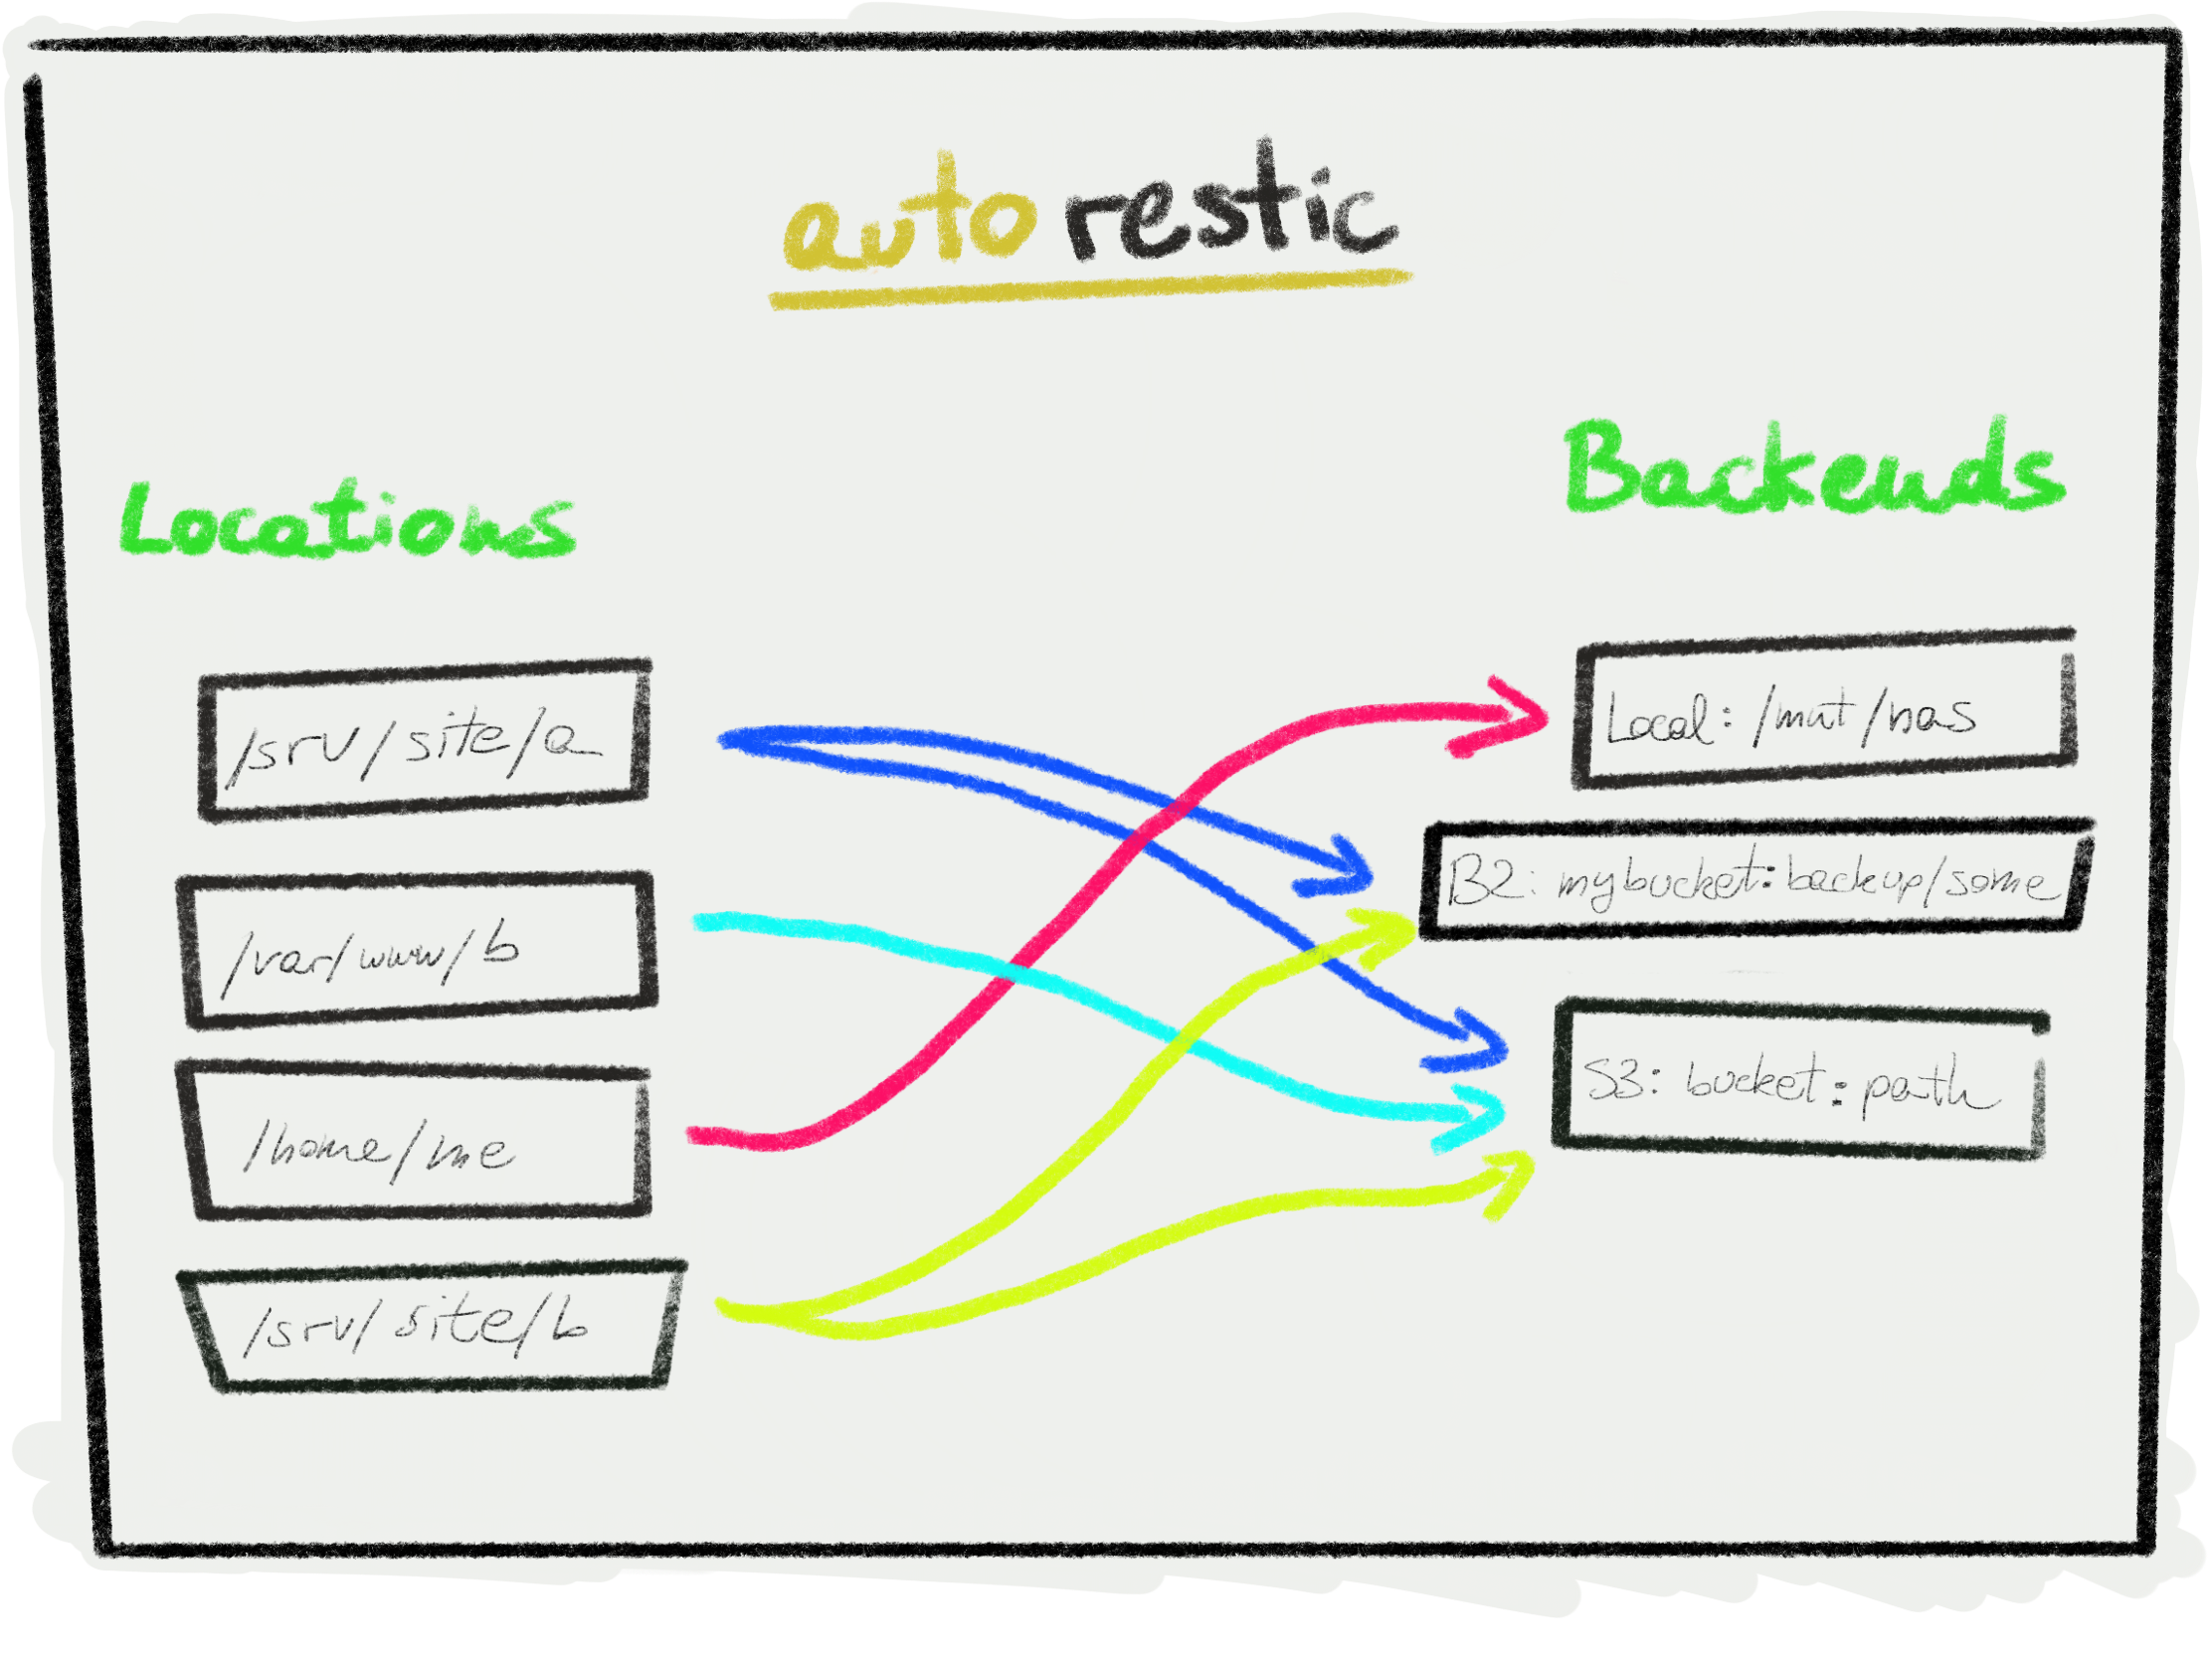 auto restic
Locations
Backends
/srv/site/a
/var/www/b
/home/me
/srv/site/b
Local: /mnt/nas
B2: mybucket:backup/some
S3: bucket:path